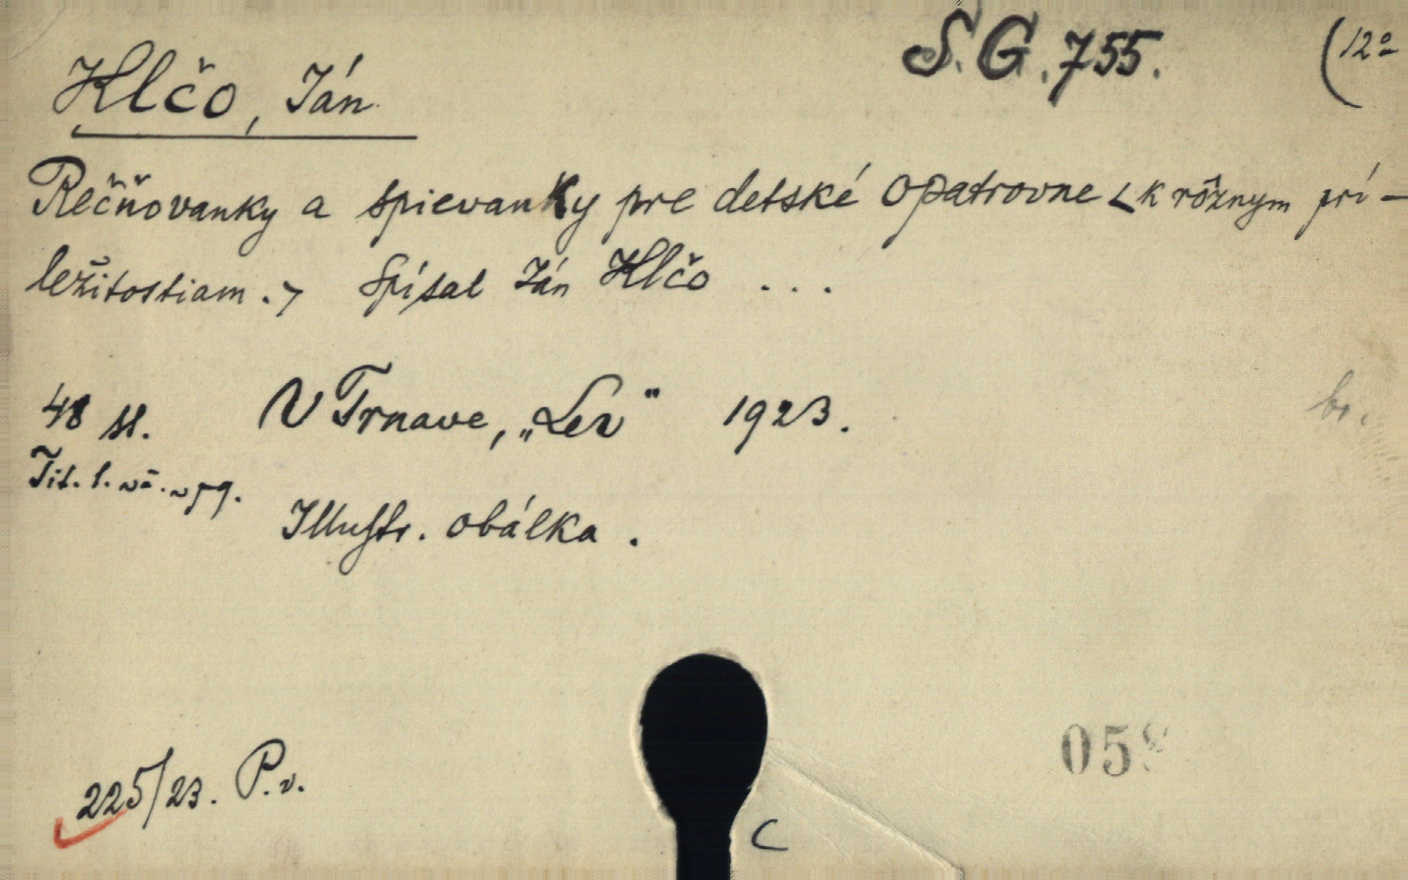 S.G.755.
(12º
Klčo, Ján
Rečňovanky a spievanky pre detské opatrovne <k rôznym prí-
ležitostiam.> Spísal Ján Klčo ...
48 st. V Trnave, „Lev" 1923.
br.
Tit. l.
Illustr. obálka.
058
225/23. P.v.
C